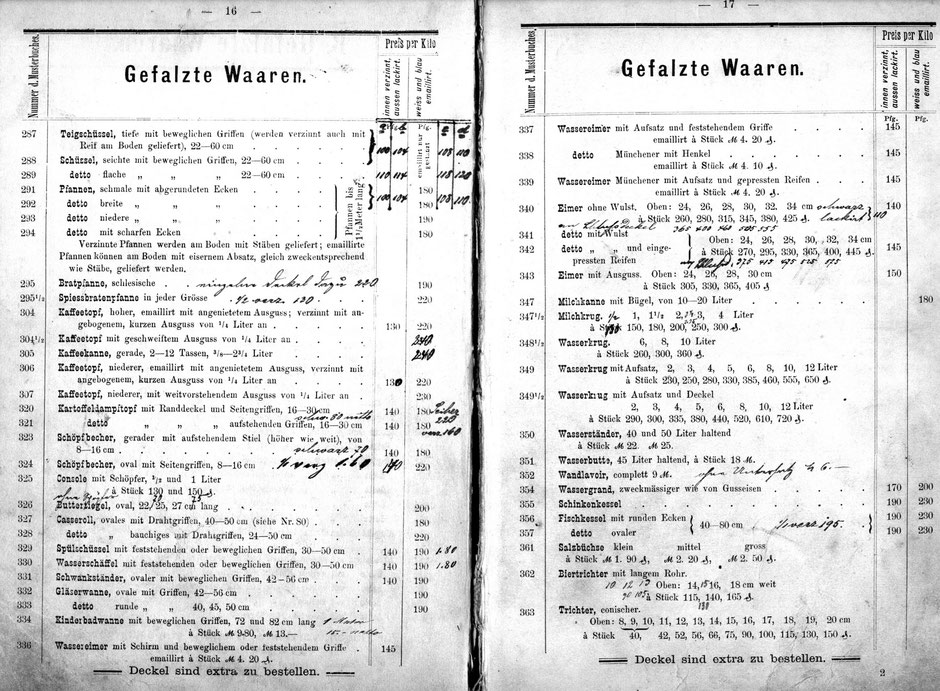 — 16 —
Nummer d. Musterbuches.
Gefalzte Waaren.
Preis per Kilo
innen verzinnt, aussen lackirt.
weiss und blau emaillirt.
Pfg.
287 Teigschüssel, tiefe mit beweglichen Griffen (werden verzinnt auch mit
Reif am Boden geliefert), 22—60 cm 100 104 108 110
288 Schüssel, seichte mit beweglichen Griffen, 22—60 cm
289 detto flache „ „ „ 22—60 cm 110 114 118 120
291 Pfannen, schmale mit abgerundeten Ecken 180
292 detto breite „ „ „ 100 104 180 108 110
293 detto niedere „ „ „ 190
294 detto mit scharfen Ecken 180
Pfannen bis 1½ Meter lang
Verzinnte Pfannen werden am Boden mit Stäben geliefert; emaillirte
Pfannen können am Boden mit eisernem Absatz, gleich zweckentsprechend
wie Stäbe, geliefert werden.
295 Bratpfanne, schlesische . einzelne Deckel dazu 220 190
295 1/2 Spiessbratenpfanne in jeder Grösse 220
304 Kaffeetopf, hoher, emaillirt mit angenietetem Ausguss; verzinnt mit an-
gebogenem, kurzen Ausguss von 1/4 Liter an 130 220
304 1/2 Kaffeetopf mit geschweiftem Ausguss von 1/4 Liter an 240
305 Kaffeekanne, gerade, 2—12 Tassen, 3/8—2 3/4 Liter 240
306 Kaffeetopf, niederer, emaillirt mit angenietetem Ausguss, verzinnt mit
angebogenem, kurzen Ausguss von 1/4 Liter an 130 220
307 Kaffeetopf, niederer, mit weitvorstehendem Ausguss von 1/4 Liter an 230
320 Kartoffeldampftopf mit Randdeckel und Seitengriffen, 16—30 cm 140 180
321 detto „ „ „ aufstehenden Griffen, 16—30 cm 140 180
323 Schöpfbecher, gerader mit aufstehendem Stiel (höher wie weit), von
8—16 cm schwarz 70 140 180
324 Schöpfbecher, oval mit Seitengriffen, 8—16 cm 1.60 140 220
325 Console mit Schöpfer, 1/2 und 1 Liter
à Stück 130 und 150 ₰
326 Butterziegel, oval, 22/25, 27 cm lang 200
327 Casseroll, ovales mit Drahtgriffen, 40—50 cm (siehe Nr. 80) 180
328 detto „ bauchiges mit Drahtgriffen, 24—50 cm 220
329 Spülschüssel mit feststehenden oder beweglichen Griffen, 30—50 cm 140 190 1.80
330 Wasserschäffel mit feststehenden oder beweglichen Griffen, 30—50 cm 140 190 1.80
331 Schwankständer, ovaler mit beweglichen Griffen, 42—56 cm 140 190
332 Gläserwanne, ovale mit Griffen, 42—56 cm 190
333 detto runde „ „ 40, 45, 50 cm 190
334 Kinderbadwanne mit beweglichen Griffen, 72 und 82 cm lang
à Stück M 9.80, M 13.—
336 Wassereimer mit Schirm und beweglichem oder feststehendem Griffe 145
emaillirt à Stück M 4. 20 ₰.
Deckel sind extra zu bestellen.
17 —
Nummer d. Musterbuches.
Gefalzte Waaren.
Preis per Kilo
innen verzinnt, aussen lackirt.
weiss und blau emaillirt.
Pfg. Pfg.
337 Wassereimer mit Aufsatz und feststehendem Griffe 145
emaillirt à Stück M 4. 20 ₰.
338 detto Münchener mit Henkel 145
emaillirt à Stück M 4. 10 ₰.
339 Wassereimer Münchener mit Aufsatz und gepressten Reifen 145
emaillirt à Stück M 4. 20 ₰.
340 Eimer ohne Wulst. Oben: 24, 26, 28, 30, 32, 34 cm schwarz 140
à Stück 260, 280, 315, 345, 380, 425 ₰. lackirt 110
365 400 460 505 555
341 detto mit Wulst
342 detto „ „ und einge-
pressten Reifen
Oben: 24, 26, 28, 30, 32, 34 cm
à Stück 270, 295, 330, 365, 400, 445 ₰. 145
343 Eimer mit Ausguss. Oben: 24, 26, 28, 30 cm 150
à Stück 305, 330, 365, 405 ₰
347 Milchkanne mit Bügel, von 10—20 Liter 180
347 1/2 Milchkrug. 1/2 1, 1 1/2 2, 3, 4 Liter
à Stück 150, 180, 200, 250, 300 ₰.
348 1/2 Wasserkrug. 6, 8, 10 Liter
à Stück 260, 300, 360 ₰.
349 Wasserkrug mit Aufsatz, 2, 3, 4, 5, 6, 8, 10, 12 Liter
à Stück 230, 250, 280, 330, 385, 460, 555, 650 ₰.
349 1/2 Wasserkrug mit Aufsatz und Deckel
2, 3, 4, 5, 6, 8, 10, 12 Liter
à Stück 290, 300, 335, 380, 440, 520, 610, 720 ₰.
350 Wasserständer, 40 und 50 Liter haltend
à Stück M 22. M 25.
351 Wasserbutte, 45 Liter haltend, à Stück 18 M.
352 Wandlavoir, complett 9 M. ohne Untersatz M 6.—
354 Wassergrand, zweckmässiger wie von Gusseisen 170 200
355 Schinkenkessel 190 230
356 Fischkessel mit runden Ecken 190 230
357 detto ovaler 190 230
40—80 cm 195.
361 Salzbüchse klein mittel gross
à Stück M 1. 90 ₰, M 2. 20 ₰, M 2. 50 ₰.
362 Biertrichter mit langem Rohr.
10 12 13 Oben: 14, 15 16, 18 cm weit
90 105 à Stück 115, 140, 165 ₰.
363 Trichter, conischer. 138
Oben: 8, 9, 10, 11, 12, 13, 14, 15, 16, 17, 18, 19, 20 cm
à Stück 40, 42, 52, 56, 66, 75, 90, 100, 115, 130, 150 ₰.
Deckel sind extra zu bestellen.
2